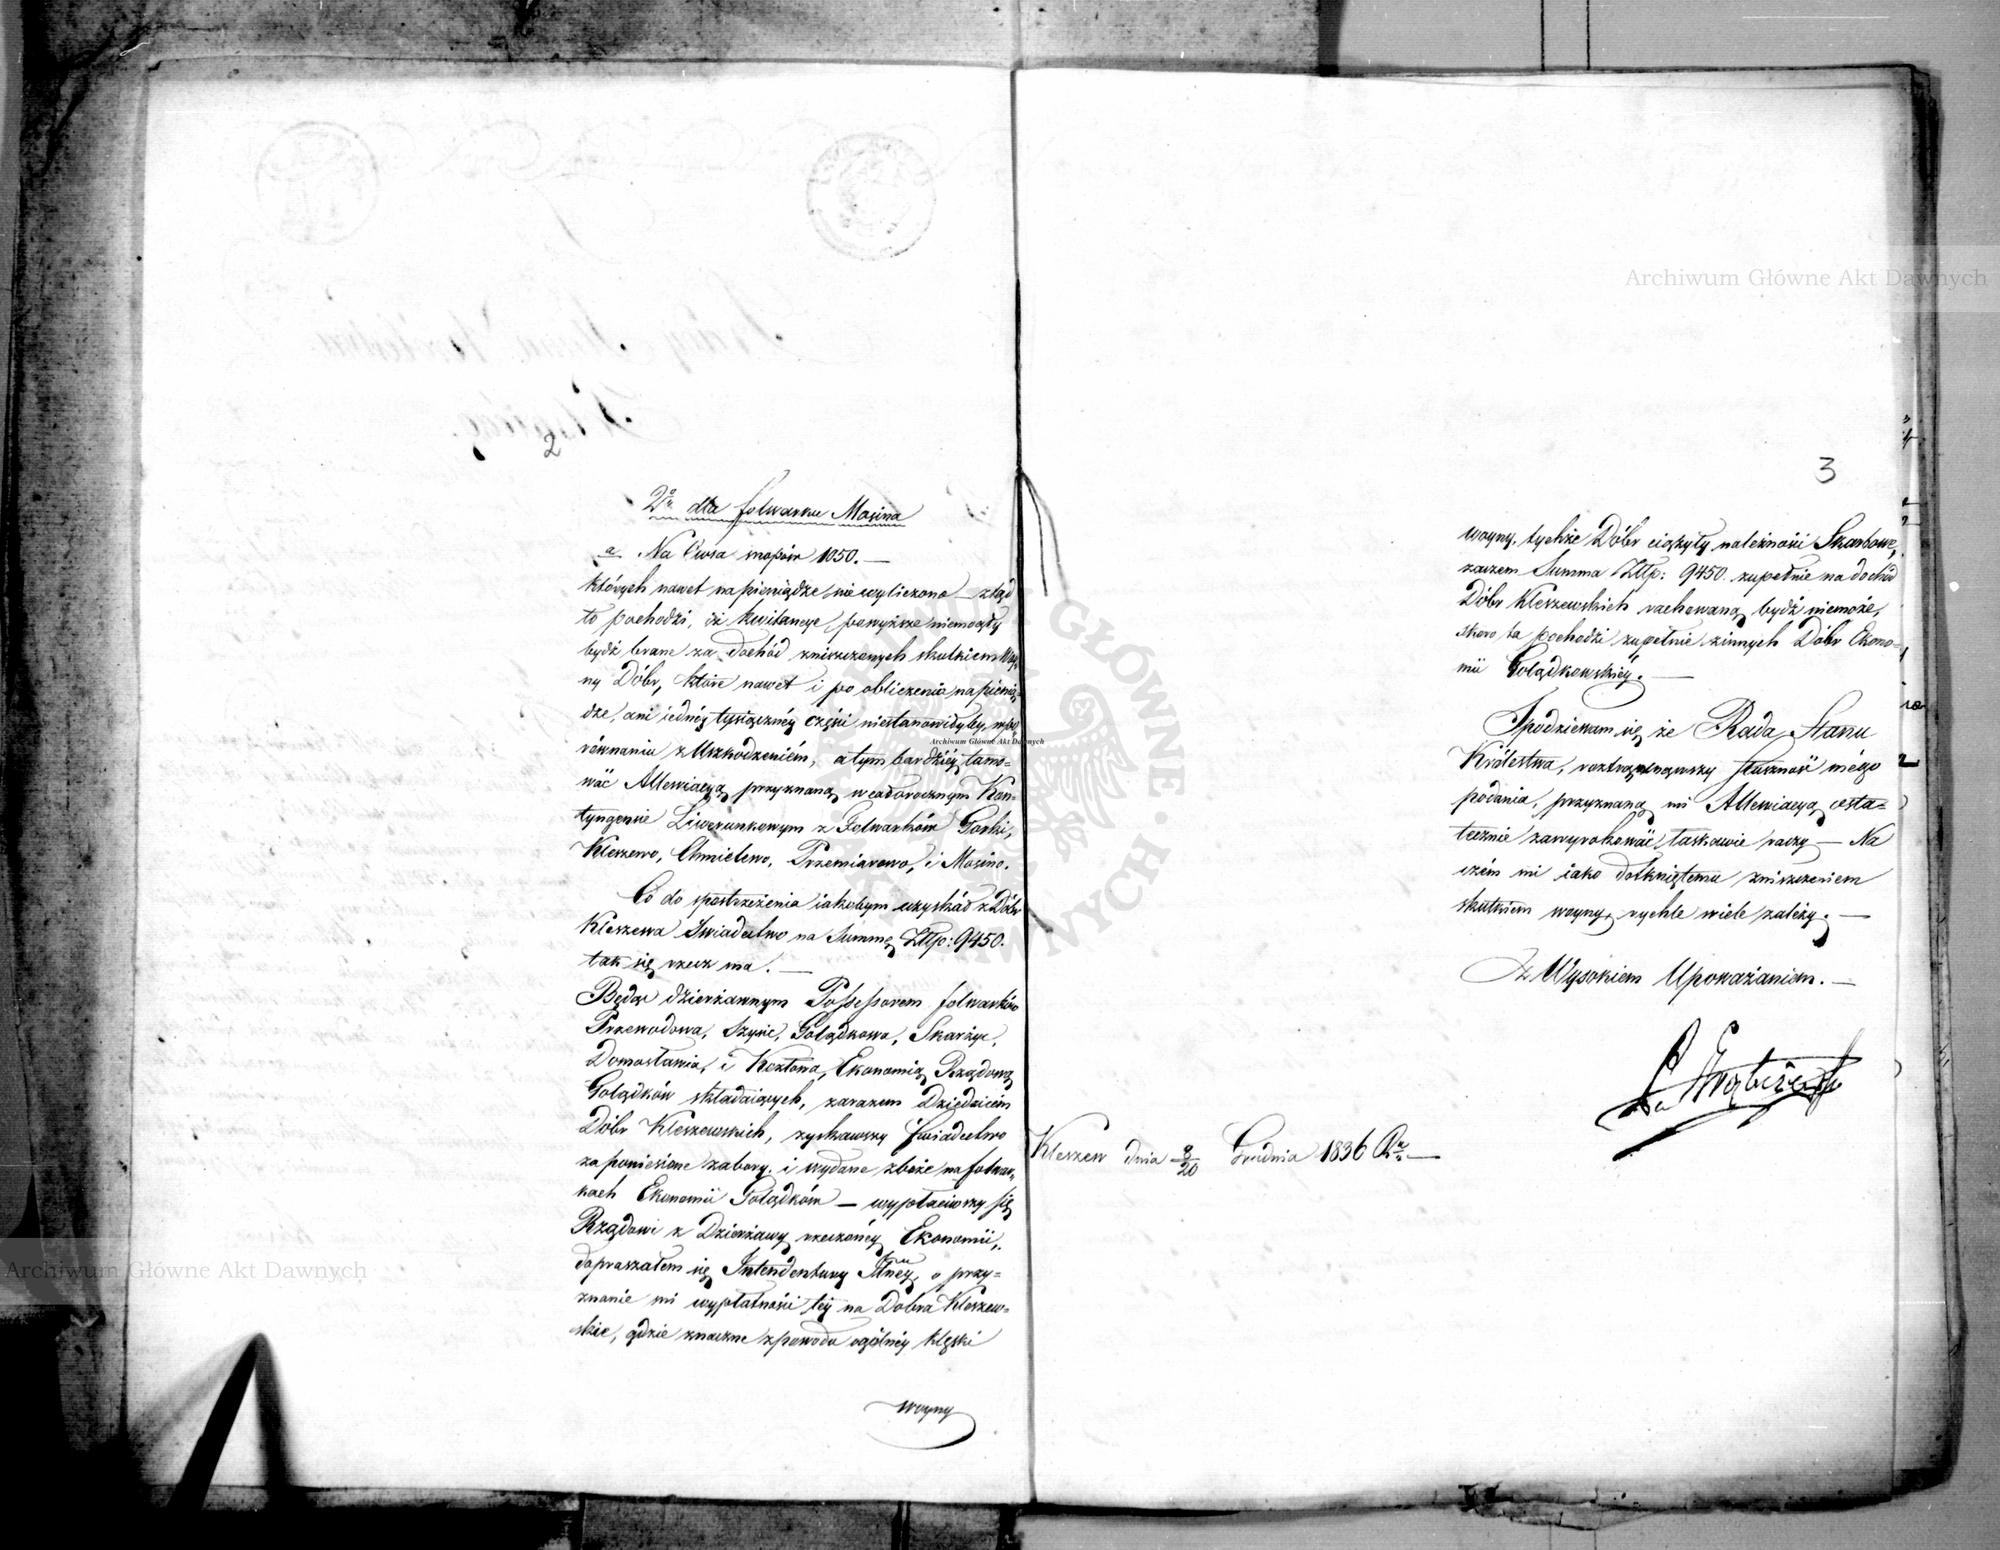 2
2º dla folwarku Mosina
a Na Owsa snopów 1050. —
których nawet na pieniądze nie wyliczono — ztąd
to pochodzi, iż kwitancye powyższe niemogły
bydź brane za dochód zniszczonych skutkiem Woy-
ny Dóbr, które nawet i po obliczeniu na pienią-
dze, ani iednéy tysiącznéy części niestanowiłyby, w po-
równaniu z Uszkodzeniém, a tym bardziéy tamo-
wać Allewiacyą przyznaną w całorocznym Kon-
tyngensie Liwerunkowym z Folwarków Gorki,
Kleszewo, Chmielewo, Przemiarowo, i Mosino.
Co do spostrzeżenia iakobym uzyskał z Dóbr
Kleszewa Swiadectwo na Summę Złłp: 9450.
tak się rzecz ma. —
Będąc dzierżawnym Possessorem folwarków
Przewodowa, Szyszc, Gołądkowa, Skarżyc,
Domosławia, i Kozłowa, Ekonomią Rządową
Gołądków składaiących, zarazem Dziedzicém
Dóbr Kleszewskich, zyskawszy świadectwo
za poniesione zabory, i wydane zboże na folwar-
kach Ekonomii Gołądków — wypłaciwszy się
Rządowi z Dzierżawy rzeczonéy Ekonomii,
dopraszałem się Intendentury o przy-
znanie mi wypłatności téy na Dobra Kleszew-
skie, gdzie znaczne z powodu ogólnéy klęski
woyny
3
woyny, tychże Dóbr ciążyły należności Skarbowe,
zaczem Summa Złłp: 9450. zupełnie na dochód
Dóbr Kleszewskich rachowaną bydź niemoże,
skoro ta pochodzi zupełnie z innych Dóbr Ekono-
mii Gołądkowskiéy. —
Spodziewam się że Rada Stanu
Królestwa, roztrząsnąwszy słuszność mégo
podania, przyznaną mi Allewiacyą osta-
tecznie zawyrokować łaskawie raczy — Na
czém mi iako dotkniętemu zniszczeniem
skutkiem woyny, rychle wiele zależy. —
Z Wysokiem Upoważaniem. —
Kleszew dnia 8/20 Grudnia 1836 Rº —
Archiwum Główne Akt Dawnych
Archiwum Główne Akt Dawnych
Archiwum Główne Akt Dawnych
ARCHIWUM GŁÓWNE AKT DAWNYCH